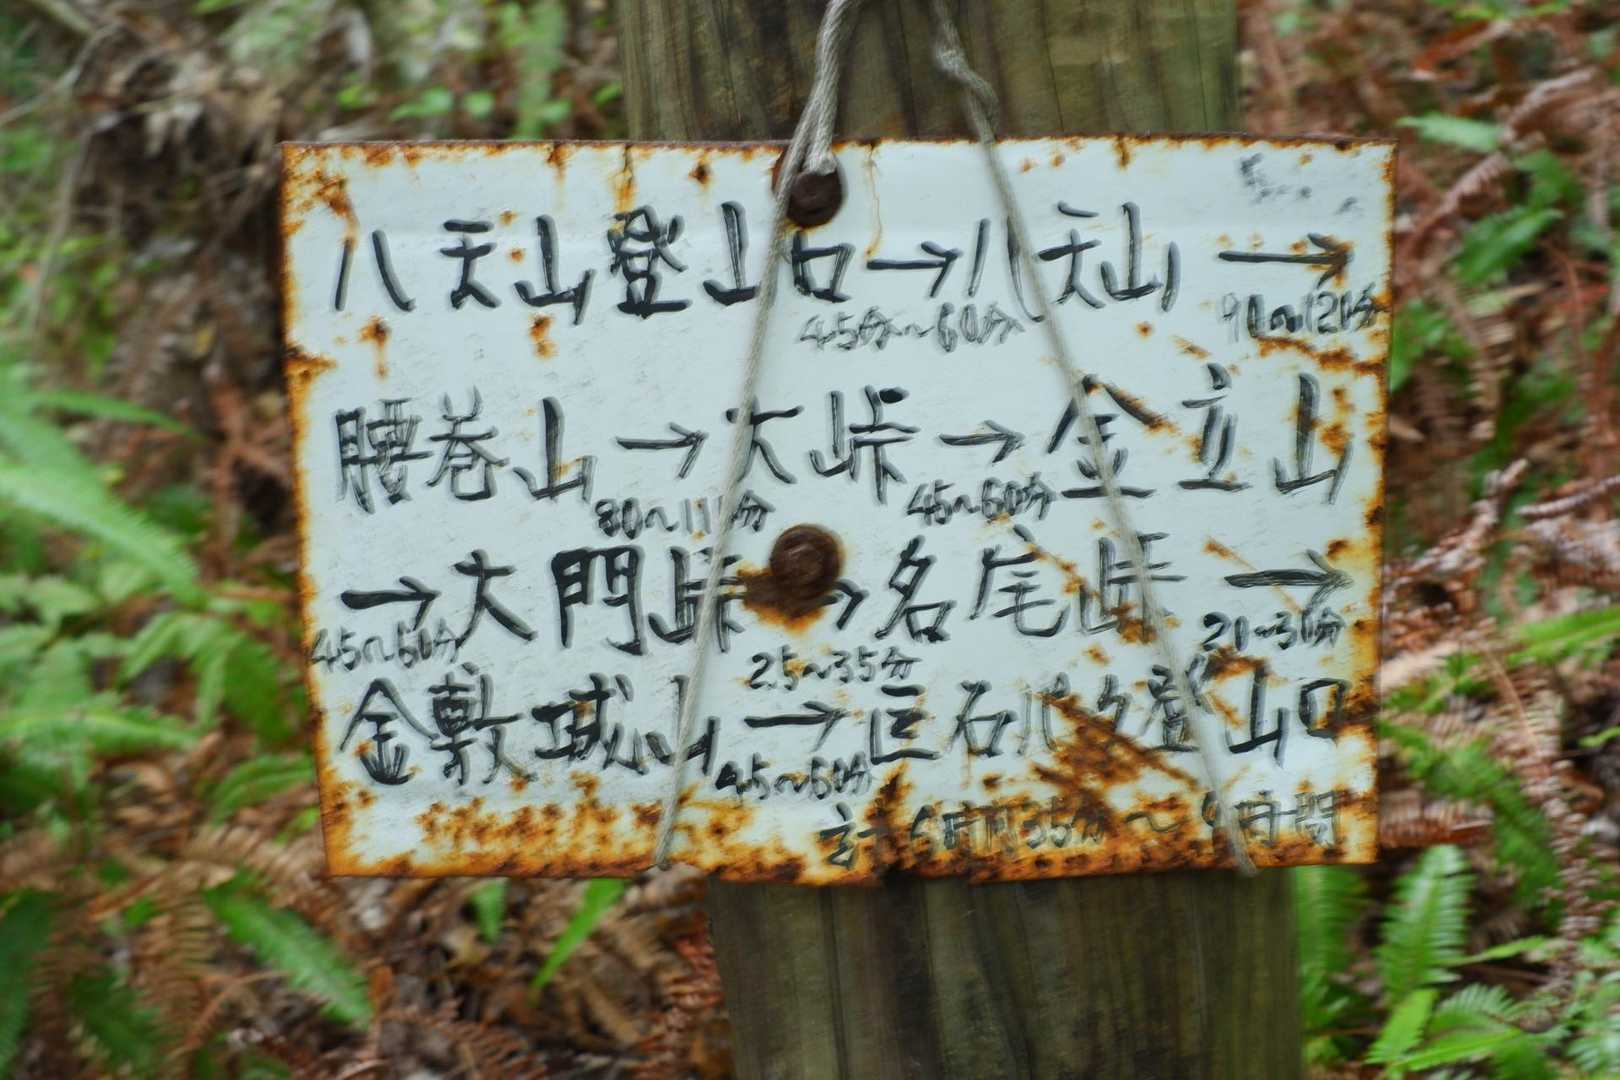 八天山登山口→八天山→
45分～60分 90～120分
腰巻山→大峠→金立山
80～11 分 45～60分
→大門峠→名尾峠→
45～60分 25～35分 21～30分
金敷城山→巨石パーク登山口
45～60分
計 時間35分～ 時間